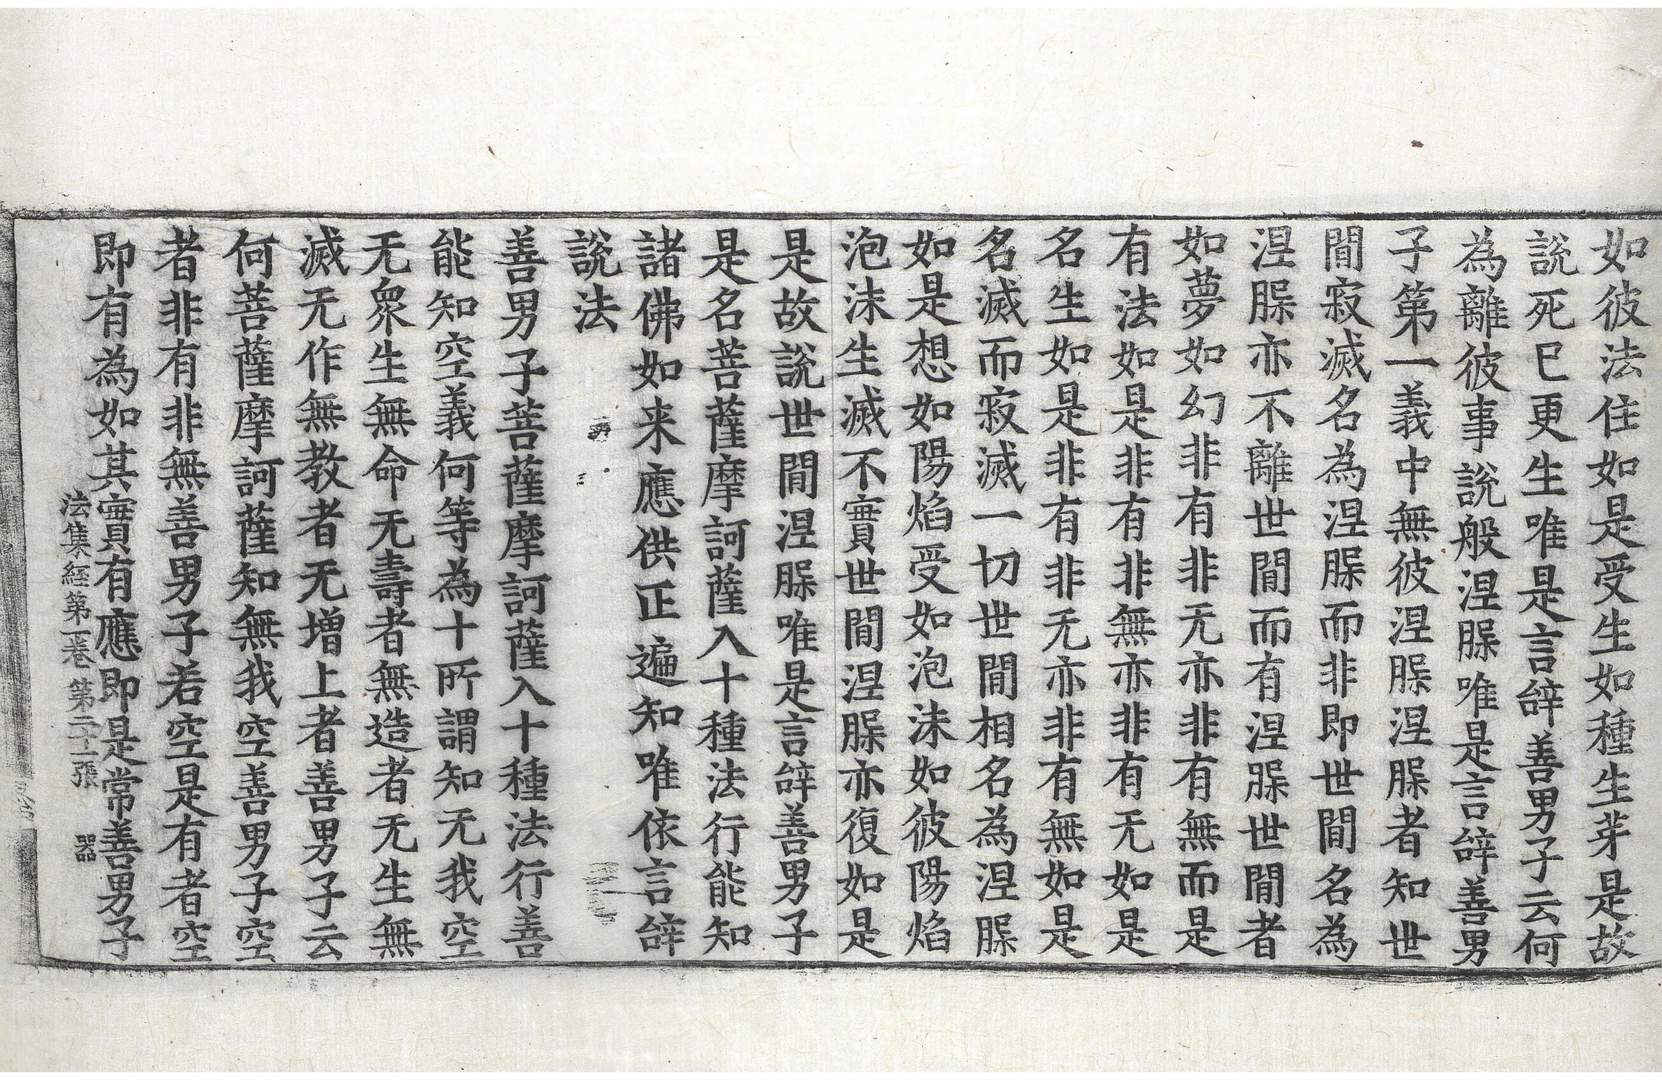 如彼法住如是受生如種生芽是故
說死已更生唯是言辝善男子云何
為離彼事說般涅䏶唯是言辝善男
子第一義中無彼涅䏶涅䏶者知世
間寂滅名為涅䏶而非即世間名為
涅䏶亦不離世間而有涅䏶世間者
如夢如幻非有非无亦非有無而是
有法如是非有非無亦非有无如是
名生如是非有非无亦非有無如是
名滅而寂滅一切世間相名為涅䏶
如是想如陽焰受如泡沫如彼陽焰
泡沫生滅不實世間涅䏶亦復如是
是故說世間涅䏶唯是言辝善男子
是名菩薩摩訶薩入十種法行能知
諸佛如来應供正遍知唯依言辝
說法
善男子菩薩摩訶薩入十種法行善
能知空義何等為十所謂知无我空
无衆生無命无壽者無造者无生無
滅无作無教者无增上者善男子云
何菩薩摩訶薩知無我空善男子空
者非有非無善男子若空是有者空
即有為如其實有應即是常善男子
法集經第一卷 第二十二張 器